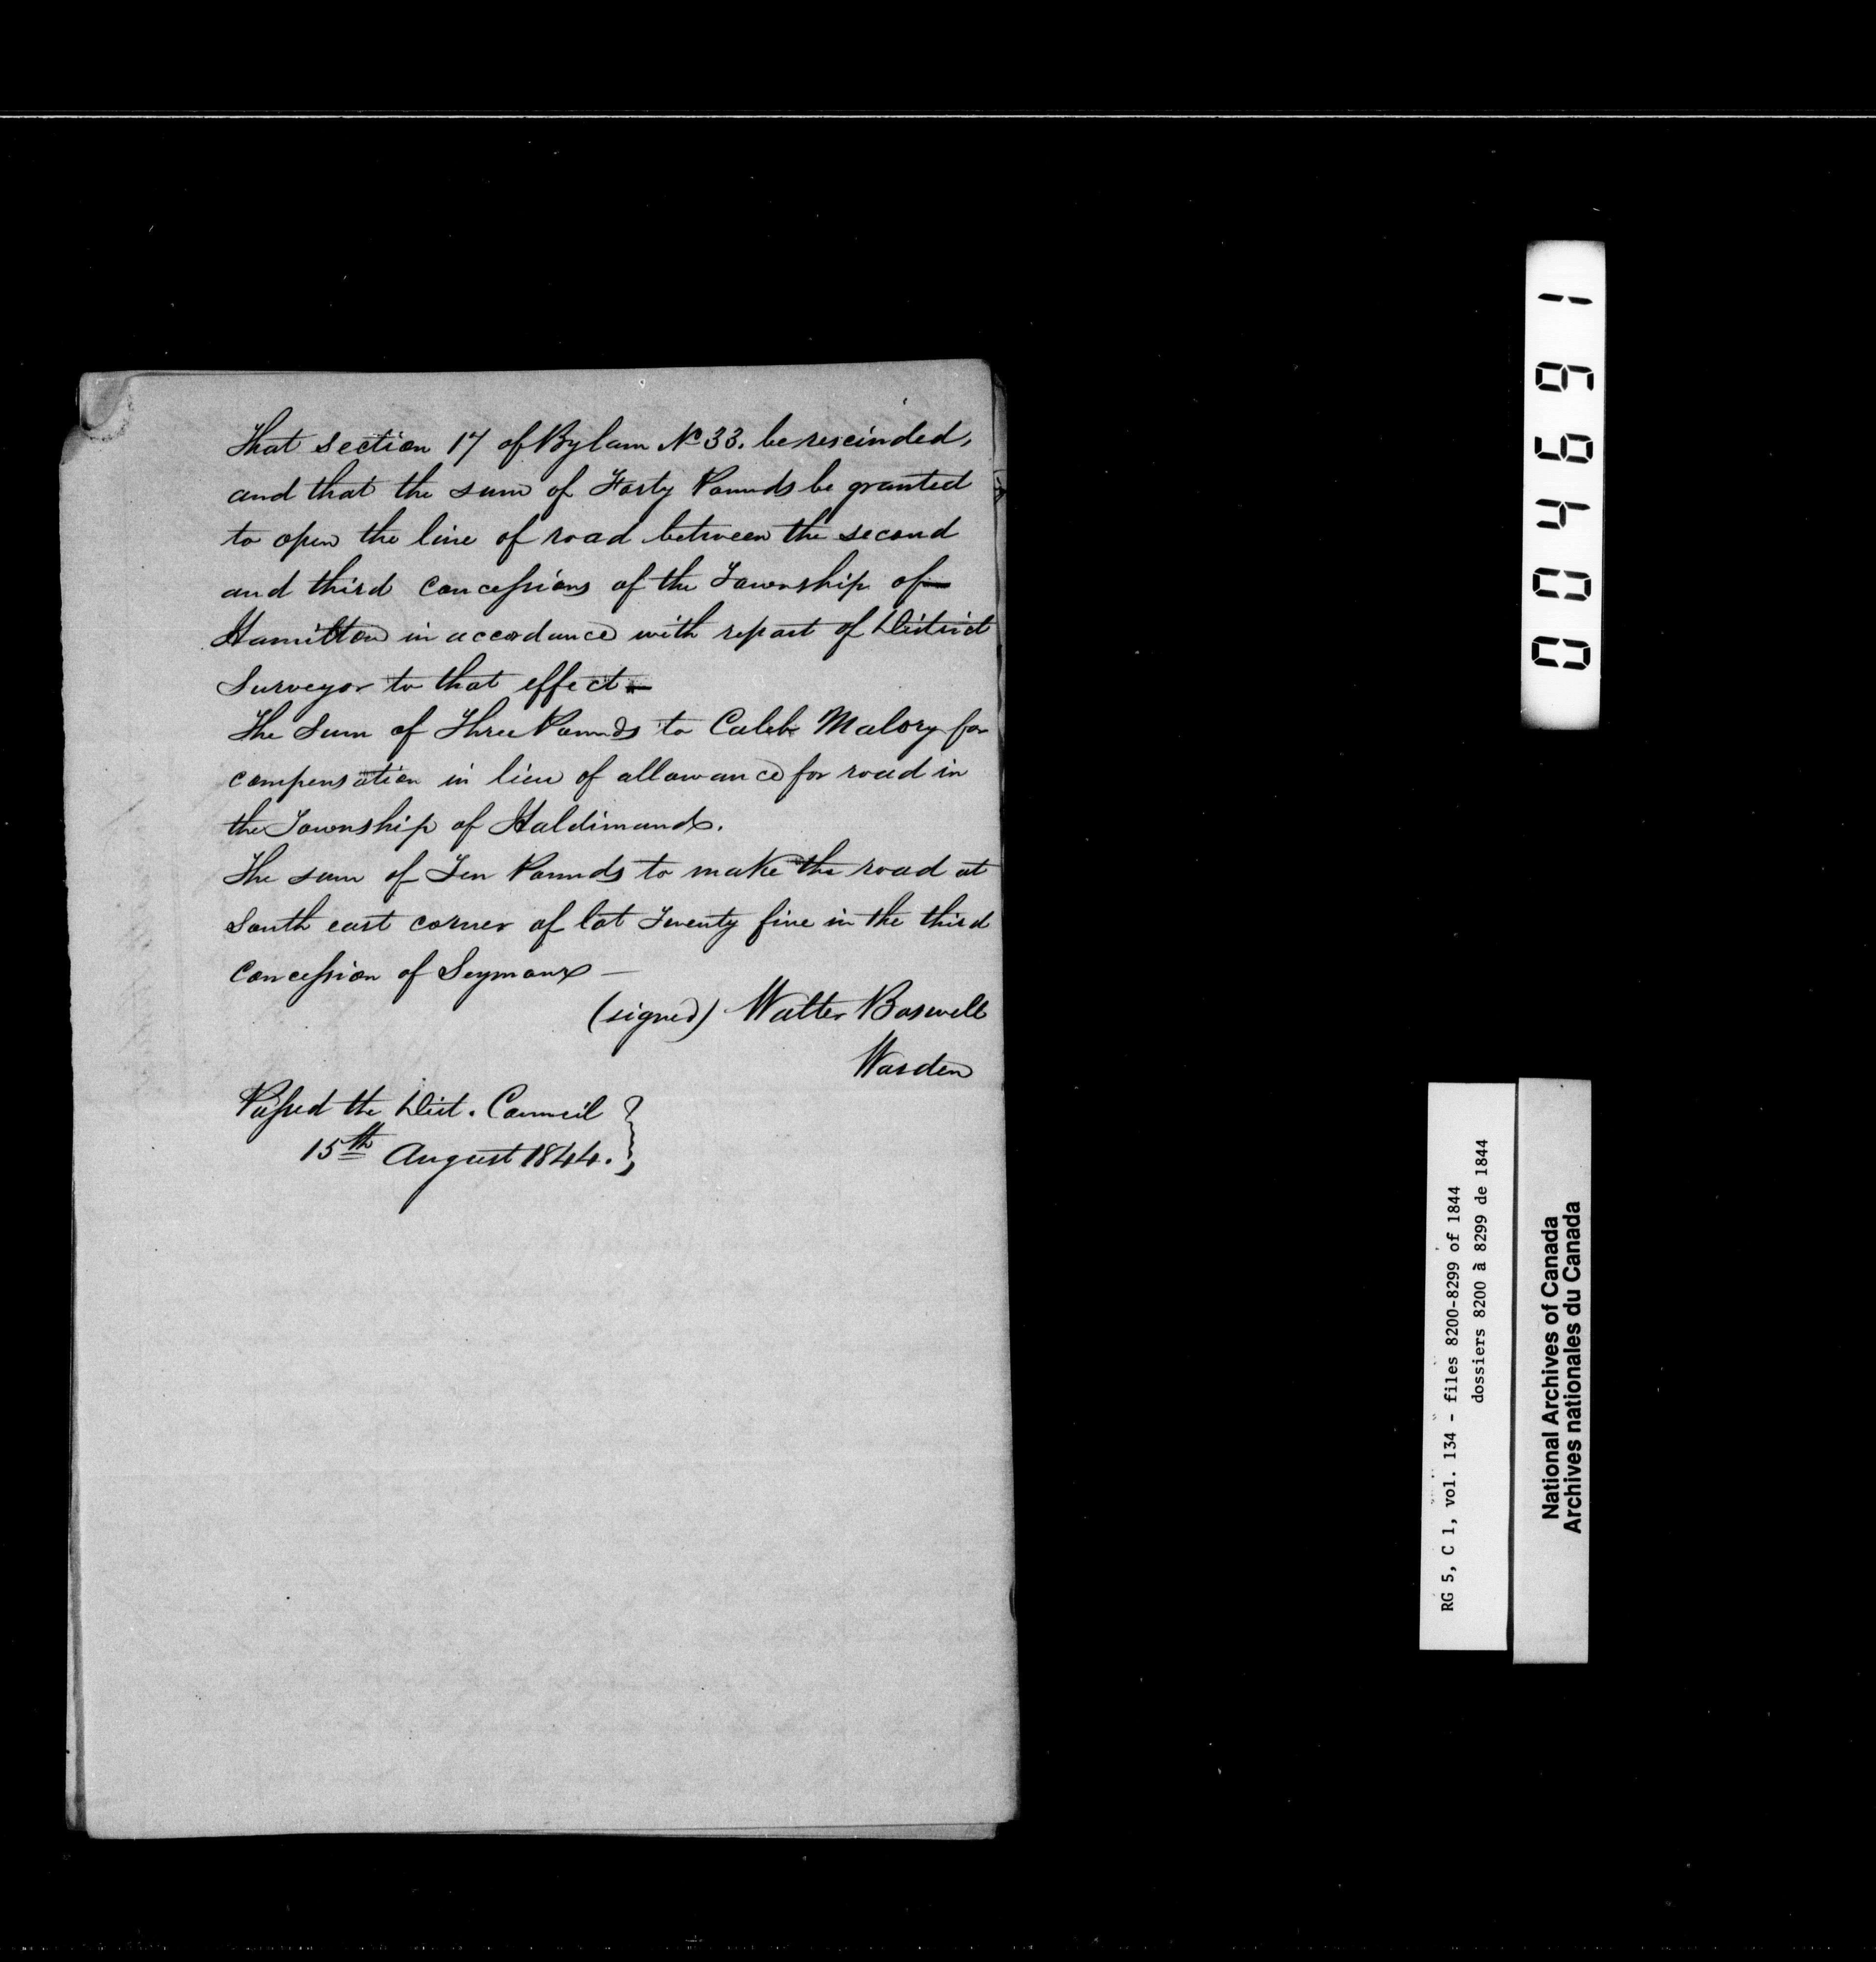 That section 17 of Bylaw No 33. be rescinded,
and that the sum of Forty Pounds be granted
to open the line of road between the second
and third Concessions of the Township of
Hamilton in accordance with report of District
Surveyor to that effect —
The Sum of Three Pounds to Caleb Malory for
compensation in lieu of allowance for road in
the Township of Haldimand.
The sum of Ten Pounds to make the road at
South east corner of lot Twenty five in the third
Concession of Seymour —
(signed) Walter Boswell
Warden
Passed the Dist. Council
15th August 1844.
004691
RG 5, C 1, vol. 134 - files 8200-8299 of 1844
dossiers 8200 à 8299 de 1844
National Archives of Canada
Archives nationales du Canada